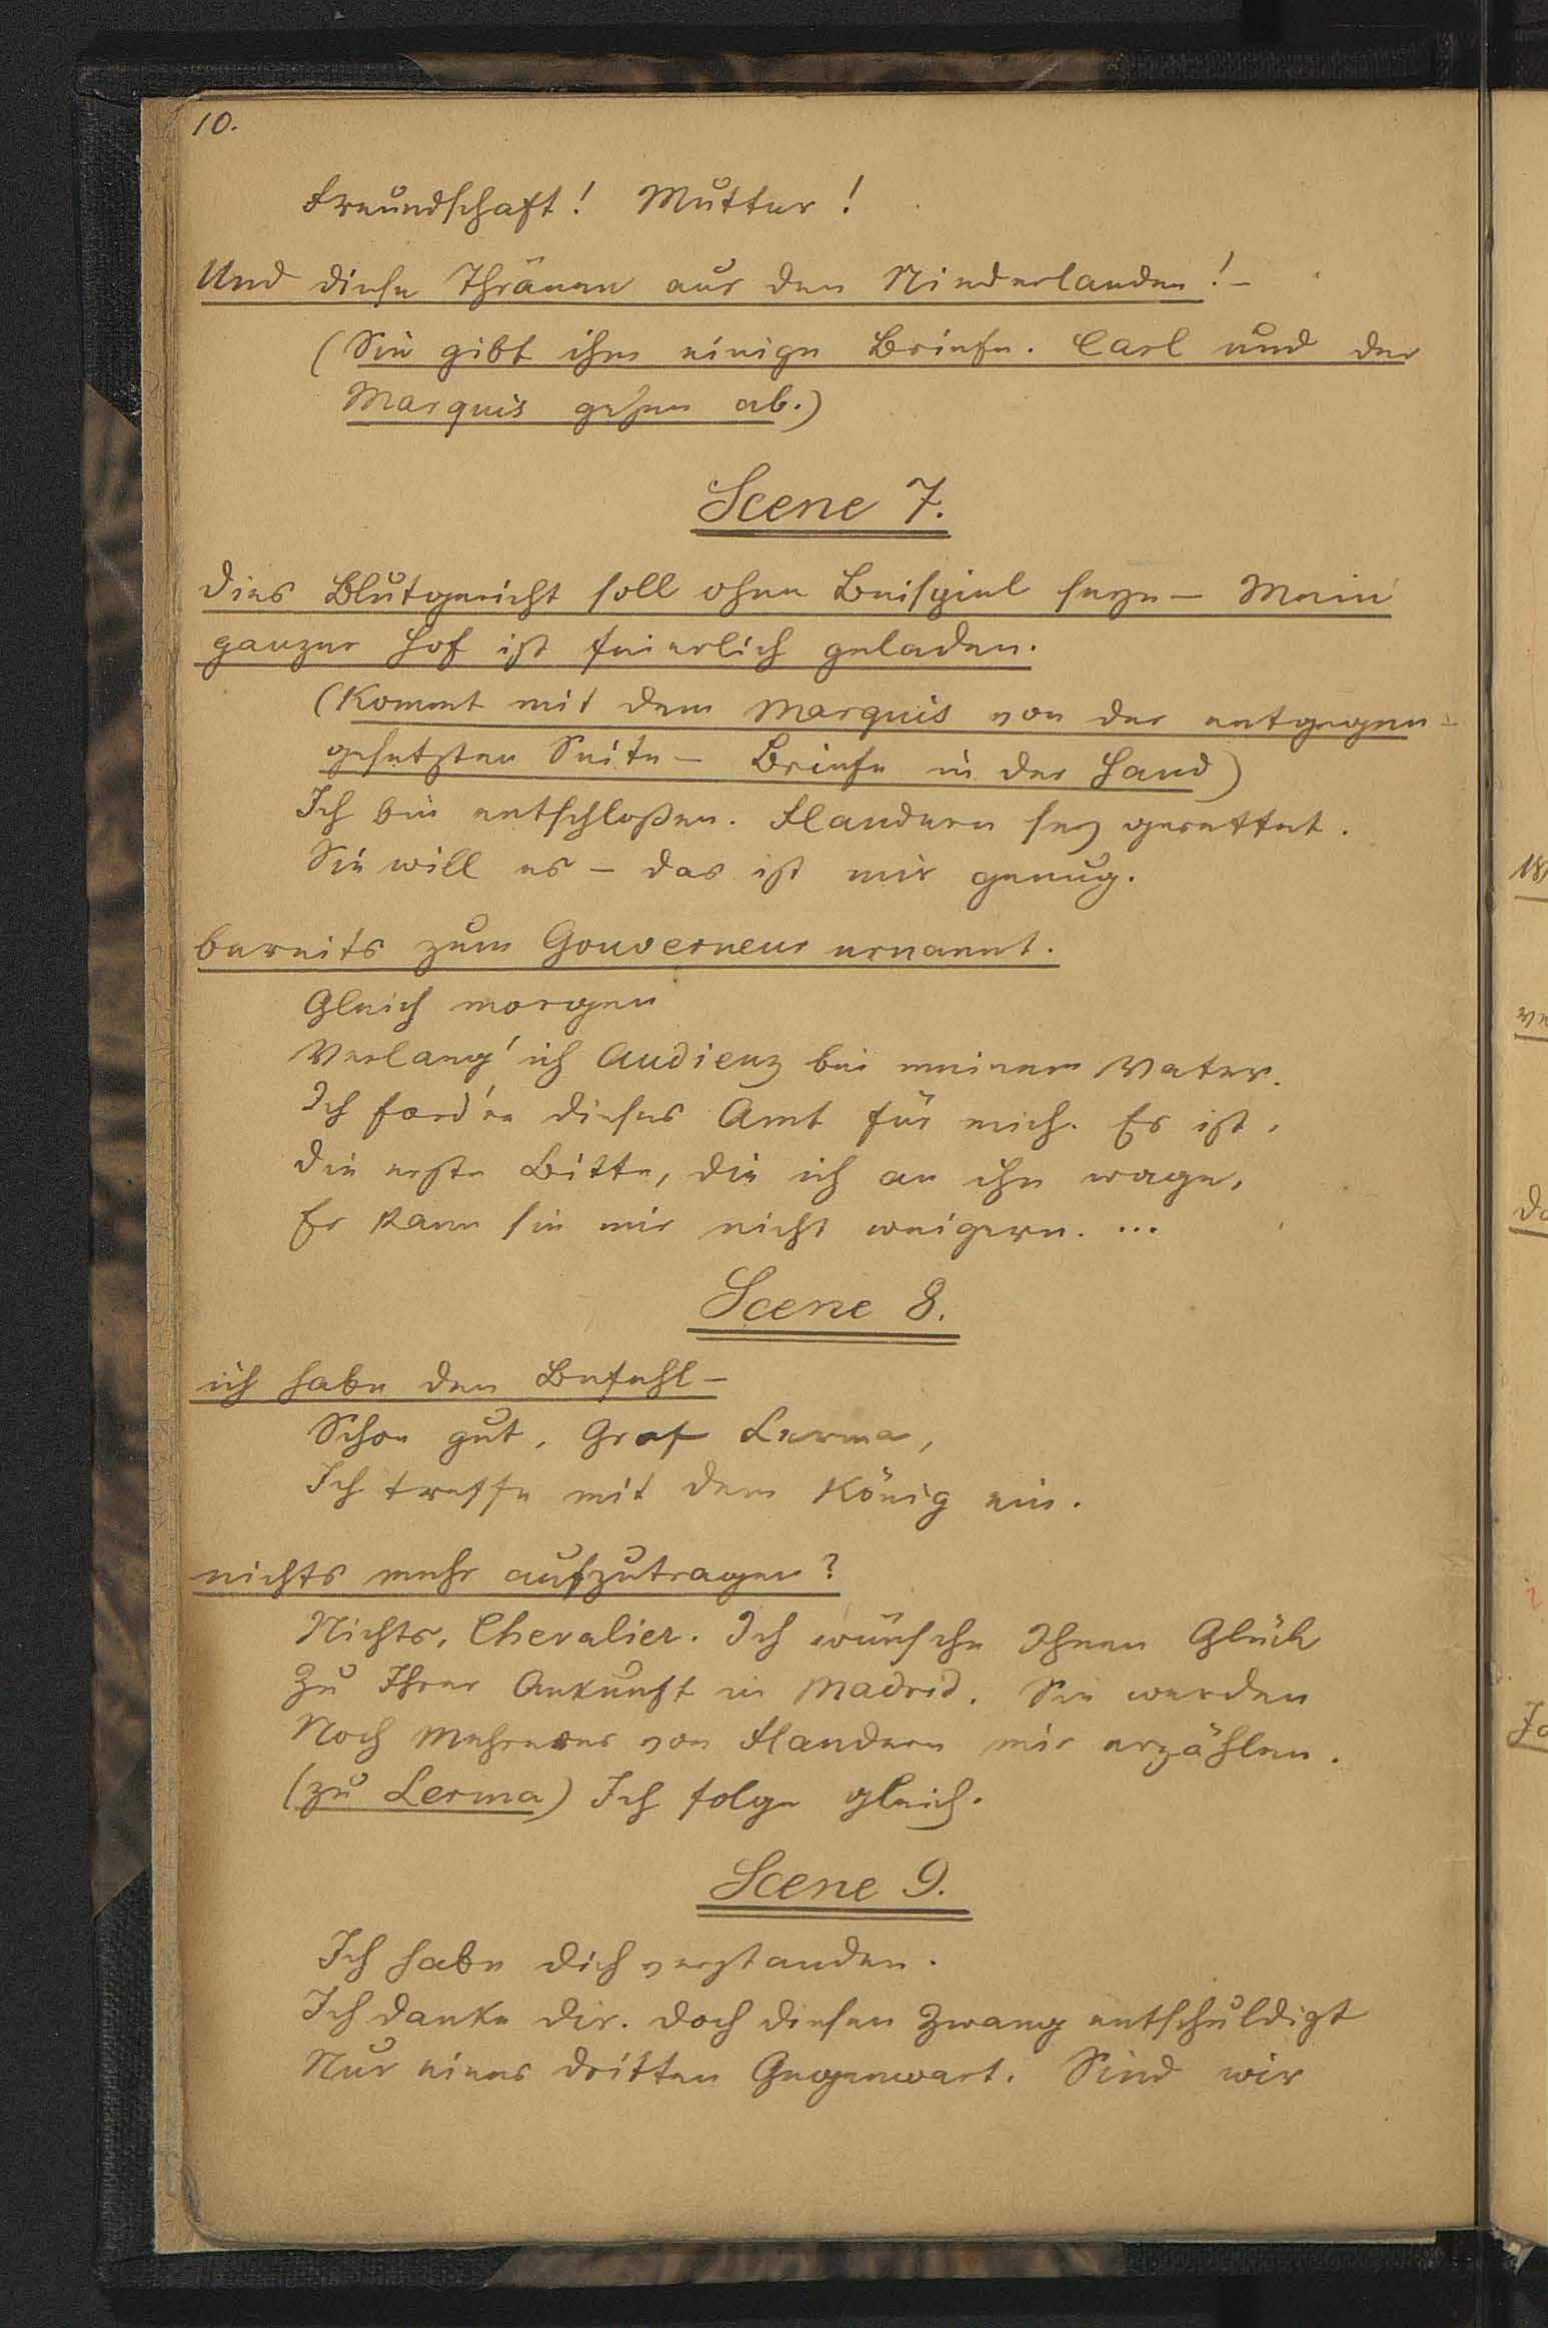 10.
Freundschaft! Mutter!
Und diese Thränen aus den Niederlanden! –
(Sie gibt ihm einige Briefe. Carl und der
Marquis gehen ab.)
Scene 7.
Dies Blutgericht soll ohne Beispiel seyn – Mein
ganzer Hof ist feierlich geladen.
(Kommt mit dem Marquis von der entgegen-
gesetzten Seite – Briefe in der Hand)
Ich bin entschloßen. Flandern sey gerettet.
Sie will es – das ist mir genug.
bereits zum Gouverneur ernannt.
Gleich morgen
Verlang' ich Audienz bei meinem Vater.
Ich ford're dieses Amt für mich. Es ist,
Die erste Bitte, die ich an ihn wage,
Er kann sie mir nicht weigern. ...
Scene 8.
ich habe den Befehl –
Schon gut, Graf Lerma,
Ich treffe mit dem König ein.
nichts mehr aufzutragen?
Nichts, Chevalier. Ich wünsche Ihnen Glück
Zu Ihrer Ankunft in Madrid. Sie werden
Noch Mehreres von Flandern mir erzählen.
(zu Lerma) Ich folge gleich.
Scene 9.
Ich habe dich verstanden.
Ich danke dir. Doch diesen Zwang entschuldigt
Nur eines dritten Gegenwart. Sind wir